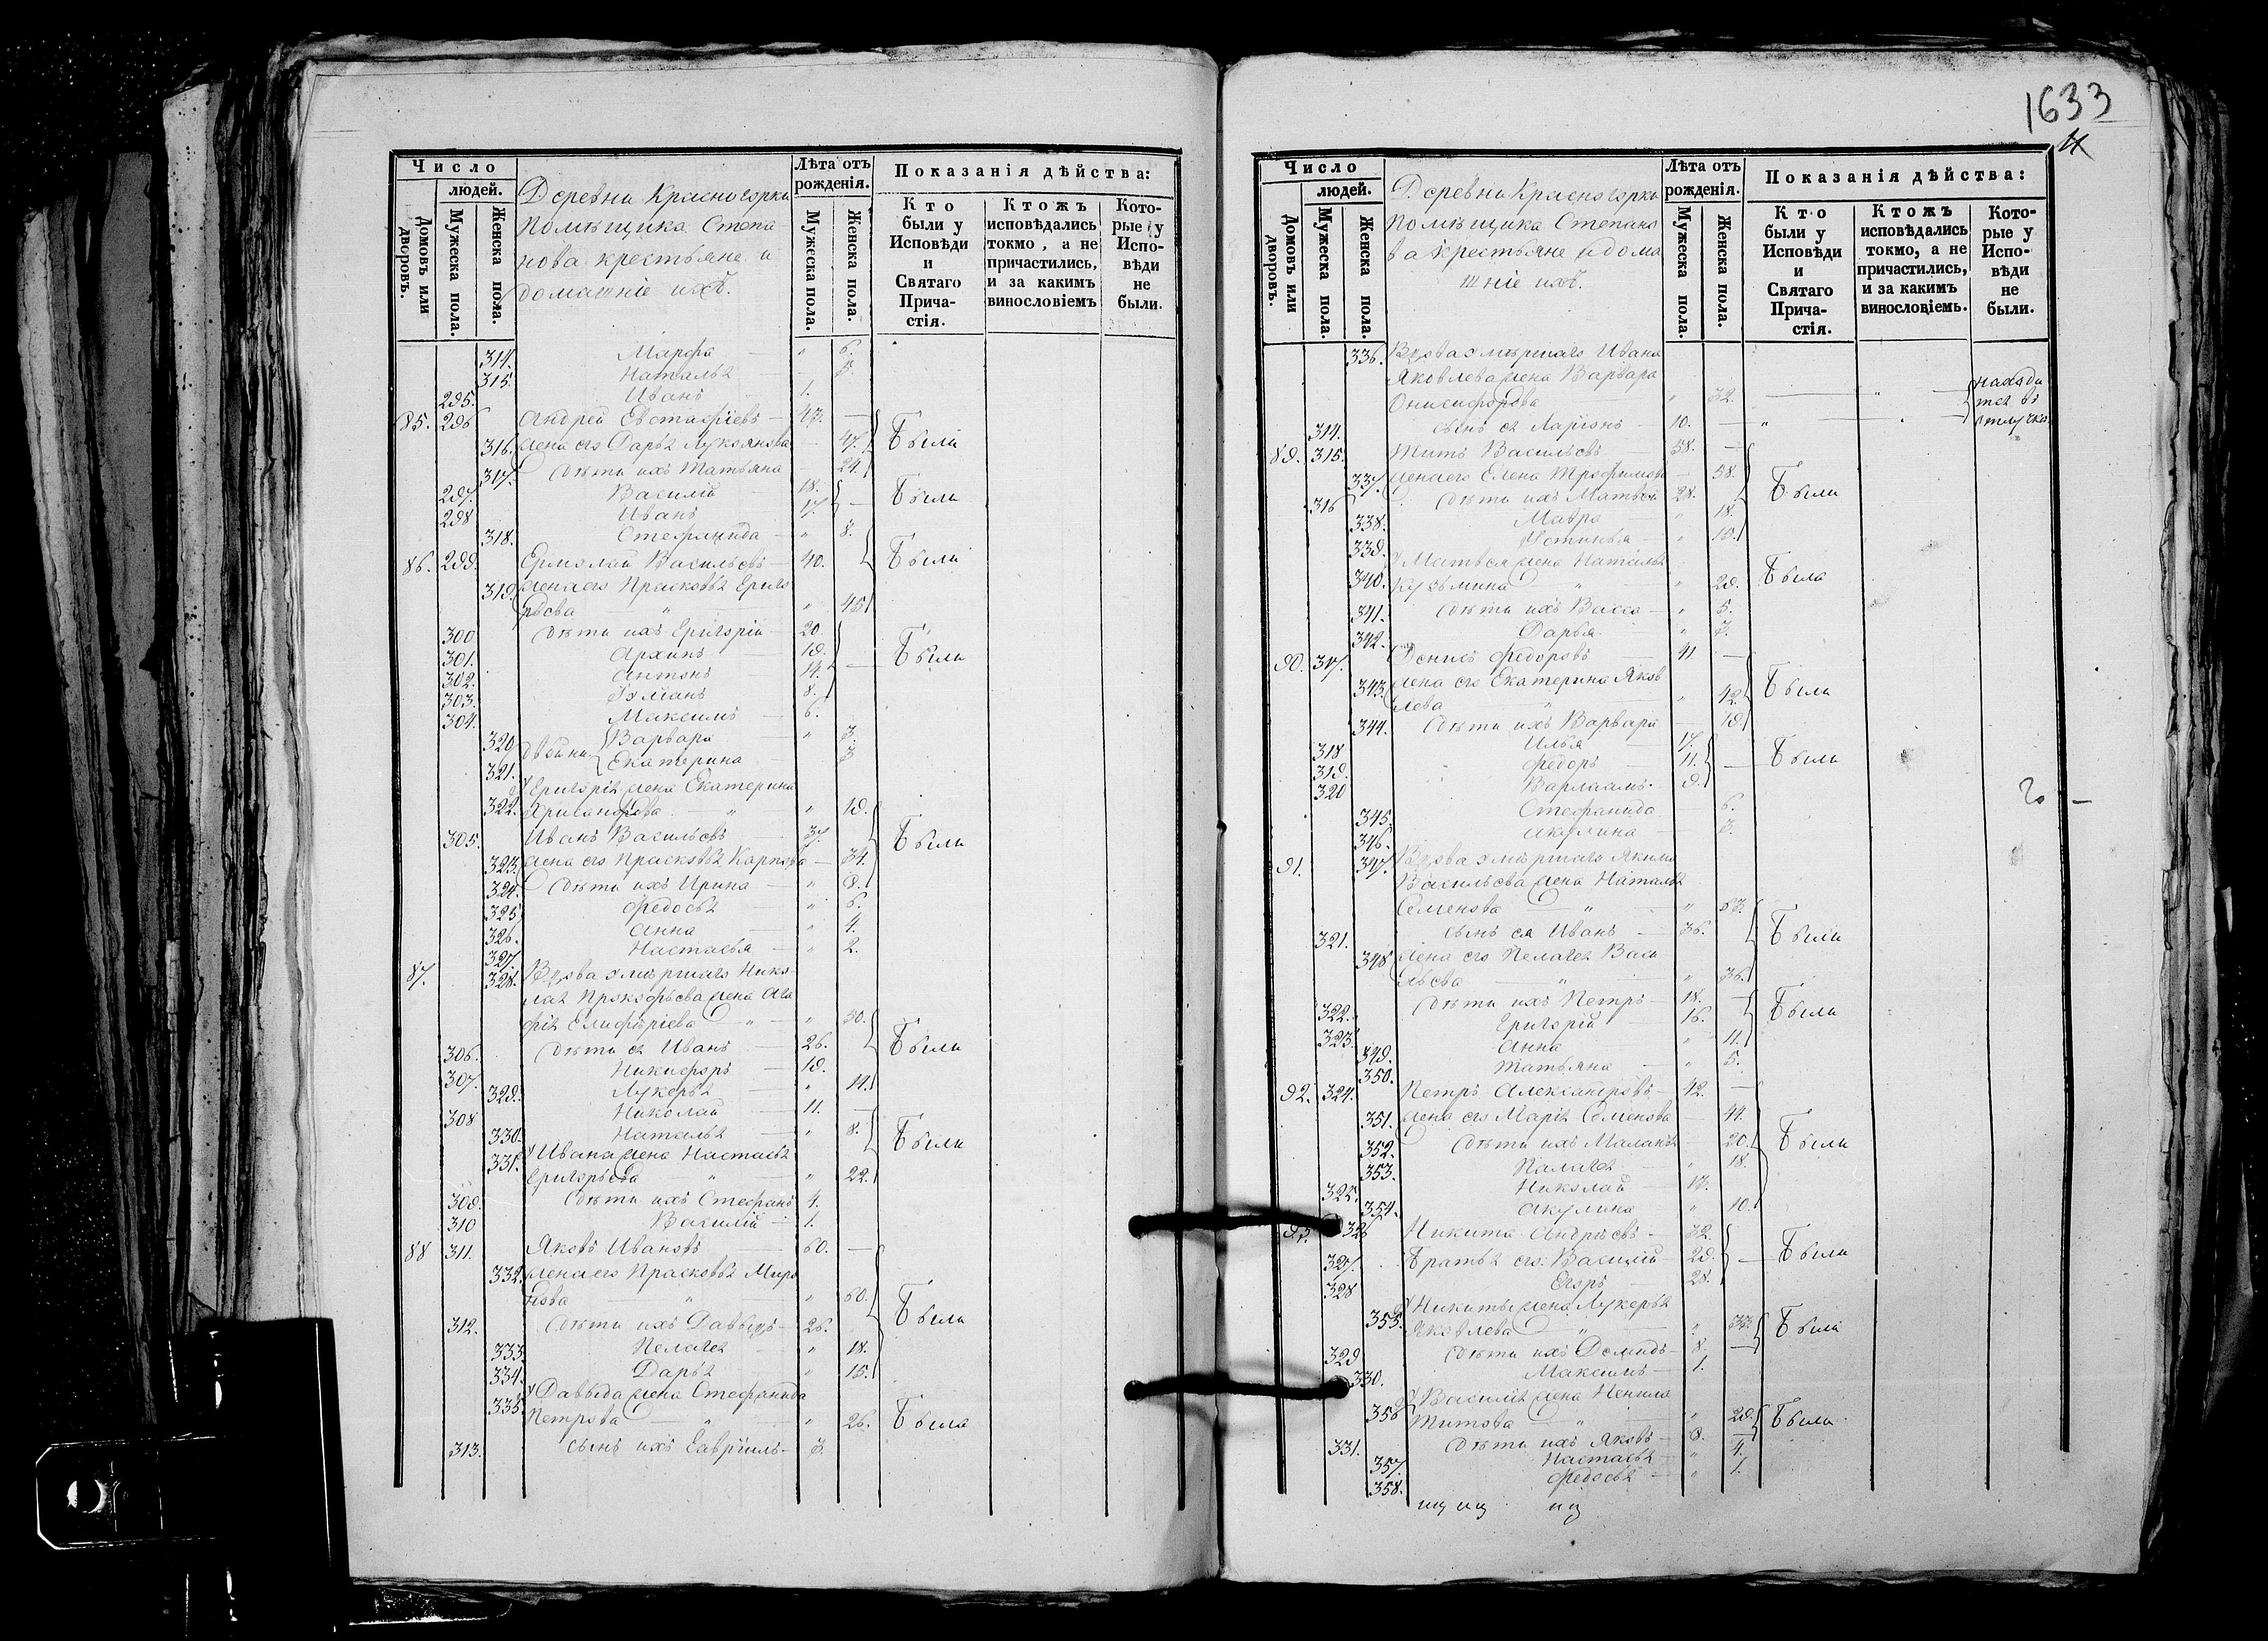 1633
Число
людей.
Домовъ или дворовъ.
Мужеска пола.
Женска пола.
Деревни Красногорки
помѣщика Степа
нова крестьяне и
домашніе ихъ.
Лѣта отъ рожденія.
Мужеска пола.
Женска пола.
Показанія дѣйства:
Кто были у Исповѣди и Святаго Прича-стія.
Ктожъ исповѣдались токмо, а не причастились, и за какимъ винословіемъ
Кото-рые у Испо-вѣди не были.
314. Марфа — " 6.
315. Наталья — 3.
295. Иванъ — 1.
85. 296 Андрей Евстафіевъ — 47. —
316. жена его Дарья Лукоянова — 47. Были
317. Дѣти ихъ Татьяна 24.
297. Василій — 18. Были
298 Иванъ 17. —
318. Стефанида — " 8.
86. 299. Ермолай Васильевъ — 40. Были
319. жена его Прасковья Григо
рьева — " — " 45
300 Дѣти ихъ Григорій — 20.
301. Архипъ 19. Были
302. Антонъ — 14. —
303. 8.
304. Максимъ — 6.
320 двойни Варвара — " 3.
321. Екатерина — 3
322. Григорія жена Екатерина
Хрисанфова — " — " 19.
305. Иванъ Васильевъ — 37. Были
323. жена его Прасковья Карпова — 34.
324. Дѣти ихъ Ирина — " 8.
325 Федосья — " 6.
326. Анна — " 4.
327. Настасья — " 2.
87. 328. Вдова умершаго Нико
лая Прокофьева жена Ага
фія Елиферіева — " — " 50.
306. Дѣти ея Иванъ — 26. Были
307. Никифоръ — 19.
329. Лукерья — " 14.
308 Николай — 11. —
330. Наталья — " 8. Были
331. Ивана жена Настасья
Григорьева — " — 22.
309. Дѣти ихъ Стефанъ 4.
310 Василій — 1.
88 311. Яковъ Ивановъ — 60. —
332. жена его Прасковья Миро
нова — " — " 60.
312. Дѣти ихъ Давыдъ — 26. Были
333 Пелагея — " 18.
334. Дарья " 15.
335. Давыда жена Стефанида
Петрова — " — " 26. Была
313. сынъ ихъ Гавріилъ — 3.
Число
людей.
Домовъ или дворовъ.
Мужеска пола.
Женска пола.
Деревни Красногорки
помѣщика Степано
ва крестьяне и дома
шніе ихъ.
Лѣта отъ рожденія.
Мужеска пола.
Женска пола.
Показанія дѣйства:
Кто были у Исповѣди и Святаго Прича-стія.
Ктожъ исповѣдались токмо, а не причастились, и за какимъ винословіемъ.
Кото-рые у Испо-вѣди не были.
336. Вдова умершаго Ивана
Яковлева жена Варвара
Онисифорова — " 32. — " — находи
тся въ
отлучкѣ
314. сынъ ея Ларіонъ — 10. — "
89. 315. Титъ Васильевъ — 58. —
337. жена его Елена Трофимова — 58.
316 Дѣти ихъ Матвѣй 28. Были
338. Мавра — " 18.
339. Фотинья — " 15.
340. Матвѣя жена Наталья
Кузьмина — " — " 29. Была
341. Дѣти ихъ Васса — " 5.
342. Дарья — " 3.
90. 317. Денисъ Федоровъ — 41 —
343. жена его Екатерина Яков
лева — " — " 42. Были
344. Дѣти ихъ Варвара — 19.
318 Илья — 17.
319. Федоръ — 11. — Были
320 Варлаамъ. 9.
345. Стефанида 6.
346. Акулина — 3.
91. 347. Вдова умершаго Якима
Васильева жена Наталья
Семенова — " — " 63.
321. сынъ ея Иванъ — 36. Были
348 жена его Пелагея Васи
льева — " — " 36.
322. Дѣти ихъ Петръ — 18. — Были
323. Григорій — 16.
349. Анна — " 11.
350. Татьяна — " 5.
92. 324. Петръ Александровъ — 42. —
351. жена его Марія Семенова — 44.
352. Дѣти ихъ 20. Были
353. Палагея — " 18.
325. Николай — 13.
354. Акулина " 10.
326 Никита Андреевъ — 32.
327. Братья его: Василій — 29. — Были
328 Егоръ — 28.
355. Никиты жена Лукерья
Яковлева — " — " 33 Была
329 Дѣти ихъ Демидъ — 8. —
330. Максимъ — 1.
356 Василія жена Ненила
Титова — " — " 29. Была
331. Дѣти ихъ Яковъ — 8. —
357. Настасья — " 4.
358. Федосья — " 1.